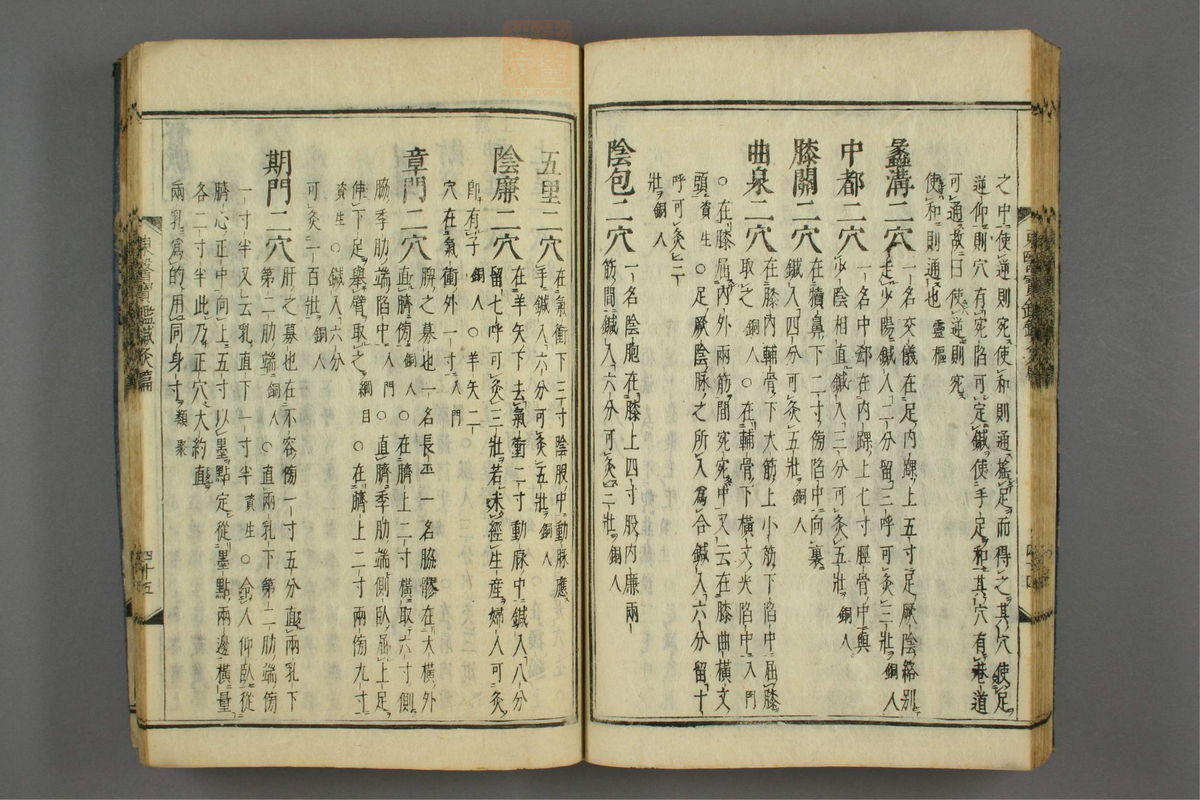 之中使逆則宛使和則通搖足而得之其穴使足
逆仰則穴有宛陷可定鍼使手足和其穴有巷道
可通故曰使逆則宛
使和則通也 靈樞
蠡溝二穴 一名交儀在足內踝上五寸足厥陰絡別
走少陽鍼入二分留三呼可灸三壯 銅人
中都二穴 一名中郄在內踝上七寸脛骨中與
少陰相直鍼入三分可灸五壯 銅人
膝關二穴 在犢鼻下二寸傍陷中向裏
鍼入四分可灸五壯 銅人
曲泉二穴 在膝內輔骨下大筋上小筋下陷中屈膝
取之 銅人 ○在輔骨下橫文尖陷中 入門
○在膝屈內外兩筋間宛宛中又云在膝曲橫文
頭 資生 ○足厥陰脉之所入爲合鍼入六分留十
呼可灸三
壯 銅人
陰包二穴 一名陰胞在膝上四寸股內廉兩
筋間鍼入六分可灸三壯 銅人
五里二穴 在氣衝下三寸陰股中動脉應
手鍼入六分可灸五壯 銅人
陰廉二穴 在羊矢下去氣衝二寸動脉中鍼入八分
留七呼可灸三壯若未經生産婦人可灸
卽有子 銅人 ○羊矢二
穴在氣衝外一寸 入門
章門二穴 脾之募也一名長平一名脇髎在大橫外
直臍傍 銅人 ○在臍上二寸橫取六寸側
脇季肋端陷中 入門 ○直臍季肋端側臥屈上足
伸下足擧臂取之 綱目 ○在臍上二寸兩傍九寸
資生 ○鍼入六分
可灸一百壯 銅人
期門二穴 肝之募也在不容傍一寸五分直兩乳下
第二肋端 銅人 ○直兩乳下第二肋端傍
一寸半又云乳直下一寸半 資生 ○令人仰臥從
臍心正中向上五寸以墨點定從墨點兩邊橫量
各二寸半此乃正穴大約直
兩乳爲的用同身寸 類聚
東醫寶鑑鍼灸篇
四十五